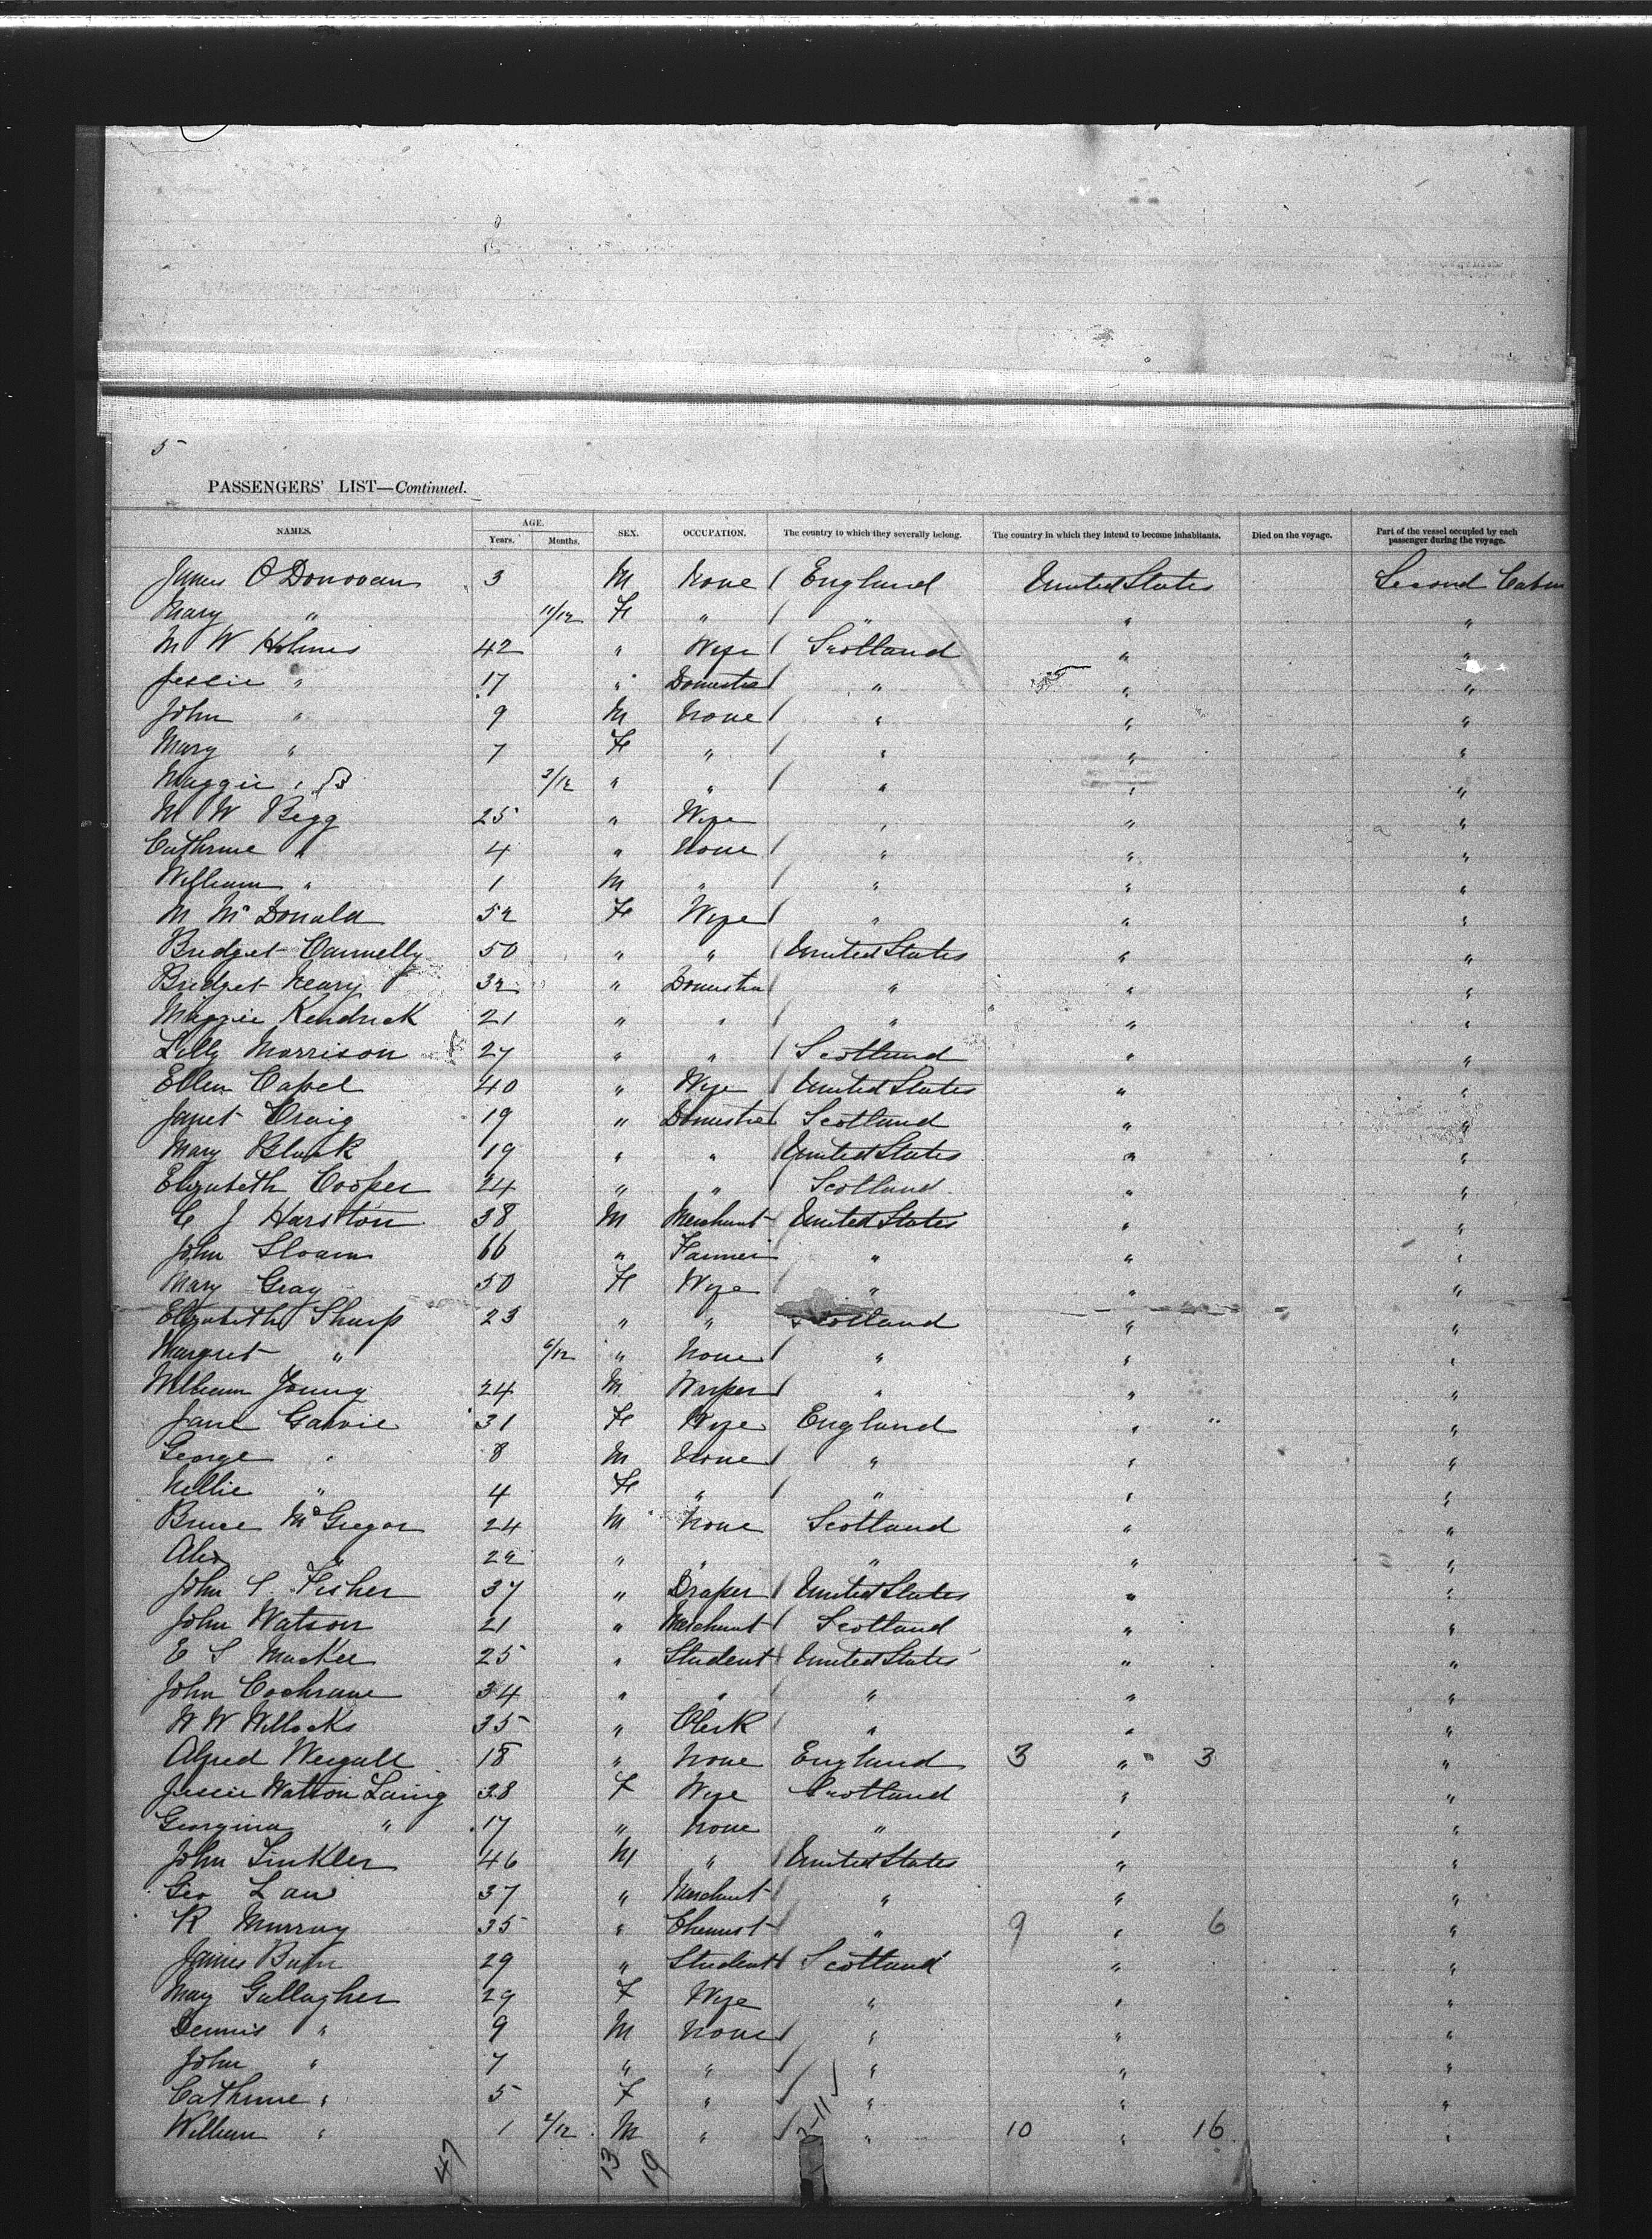 5
PASSENGERS' LIST—Continued.
NAMES. AGE. Years. Months. SEX. OCCUPATION. The country to which they severally belong. The country in which they intend to become inhabitants. Died on the voyage. Part of the vessel occupied by each passenger during the voyage.
James O'Donovan 3 M None England United States Second Cabin
Mary " 11/12 F " " " "
M W Holmes 42 " Wife Scotland " "
Jessie " 17 " Domestic " " "
John " 9 M None " " "
Mary " 7 F " " " "
Maggie " 3/12 " " " " "
M W Begg 25 " Wife " " "
Cathrine " 4 " None " " "
William " 1 M " " " "
M McDonald 52 F Wife " " "
Bridget Cannelly 50 " " United States " "
Bridget Neary 32 " Domestic " " "
Maggie Kendrick 21 " " " " "
Lilly Morrison 27 " " Scotland " "
Ellen Capel 40 " Wife United States " "
Janet Craig 19 " Domestic Scotland " "
Mary Black 19 " " United States " "
Elizabeth Cooper 24 " " Scotland " "
C J Harston 38 M Merchant United States " "
John Sloam 66 " Farmer " " "
Mary Gray 50 F Wife " " "
Elizabeth Sharp 23 " " Scotland " "
Margret " 6/12 " None " " "
William Young 24 M Warper " " "
Jane Garvie 31 F Wife England " "
George " 8 M None " " "
Nellie " 4 F " " " "
Bruce McGregor 24 M None Scotland " "
Alex " 22 " " " " "
John S. Fisher 37 " Draper United States " "
John Watson 21 " Merchant Scotland " "
E S Mackee 25 " Student United States " "
John Cochrane 34 " " " " "
W W Willocks 35 " Clerk " " "
Alfred Weigall 18 " None England 3 " 3 "
Jessie Watson Laing 38 F Wife Scotland " "
Georgina " 17 " None " " "
John Tinkler 46 M " United States " "
Geo Law 37 " Merchant " " "
R Murray 35 " Chemist " 9 " 6 "
James Bain 29 " Student Scotland " "
May Gallagher 29 F Wife " " "
Dennis " 9 M None " " "
John " 7 " " " " "
Cathrine " 5 F " " " "
William " 1 2/12 M " " 10 " 16 "
47 13 19 2-11